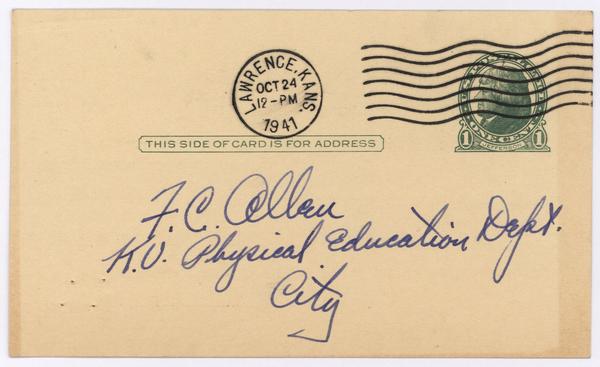 LAWRENCE, KANS.
OCT 24
12-PM
1941
1 JEFFERSON 1
THIS SIDE OF CARD IS FOR ADDRESS
F. C. Allen
K.U. Physical Education Dept.
City